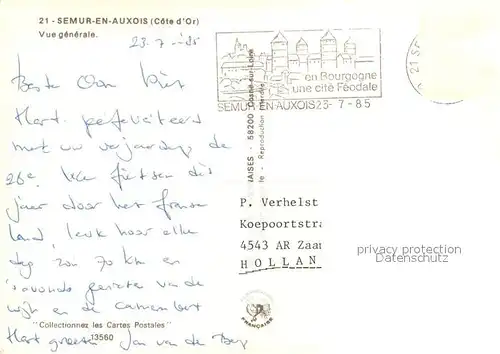 21 - SEMUR-EN-AUXOIS (Côte d'Or)
Vue générale.
23-7-'85
Beste Oom Piet
Hart. gefeliciteerd
met uw verjaardag de
26e. We fietsen dit
jaar door het franse
land, leuk hoor elke
dag zo'n 70 km en
's avonds genieten van de
wijn en de camembert
Hart groeten Jan van de Berg
"Collectionnez les Cartes Postales"
13560
en Bourgogne
une cité Féodale
SEMUR EN AUXOIS 23-7-85
21 S
AISES - 58200 Cosne-sur-Loire
te - Reproduction interdite
P. Verhelst
Koepoortstra
4543 AR Zaam
HOLLAN
privacy protection
Datenschutz
FRANÇAISE